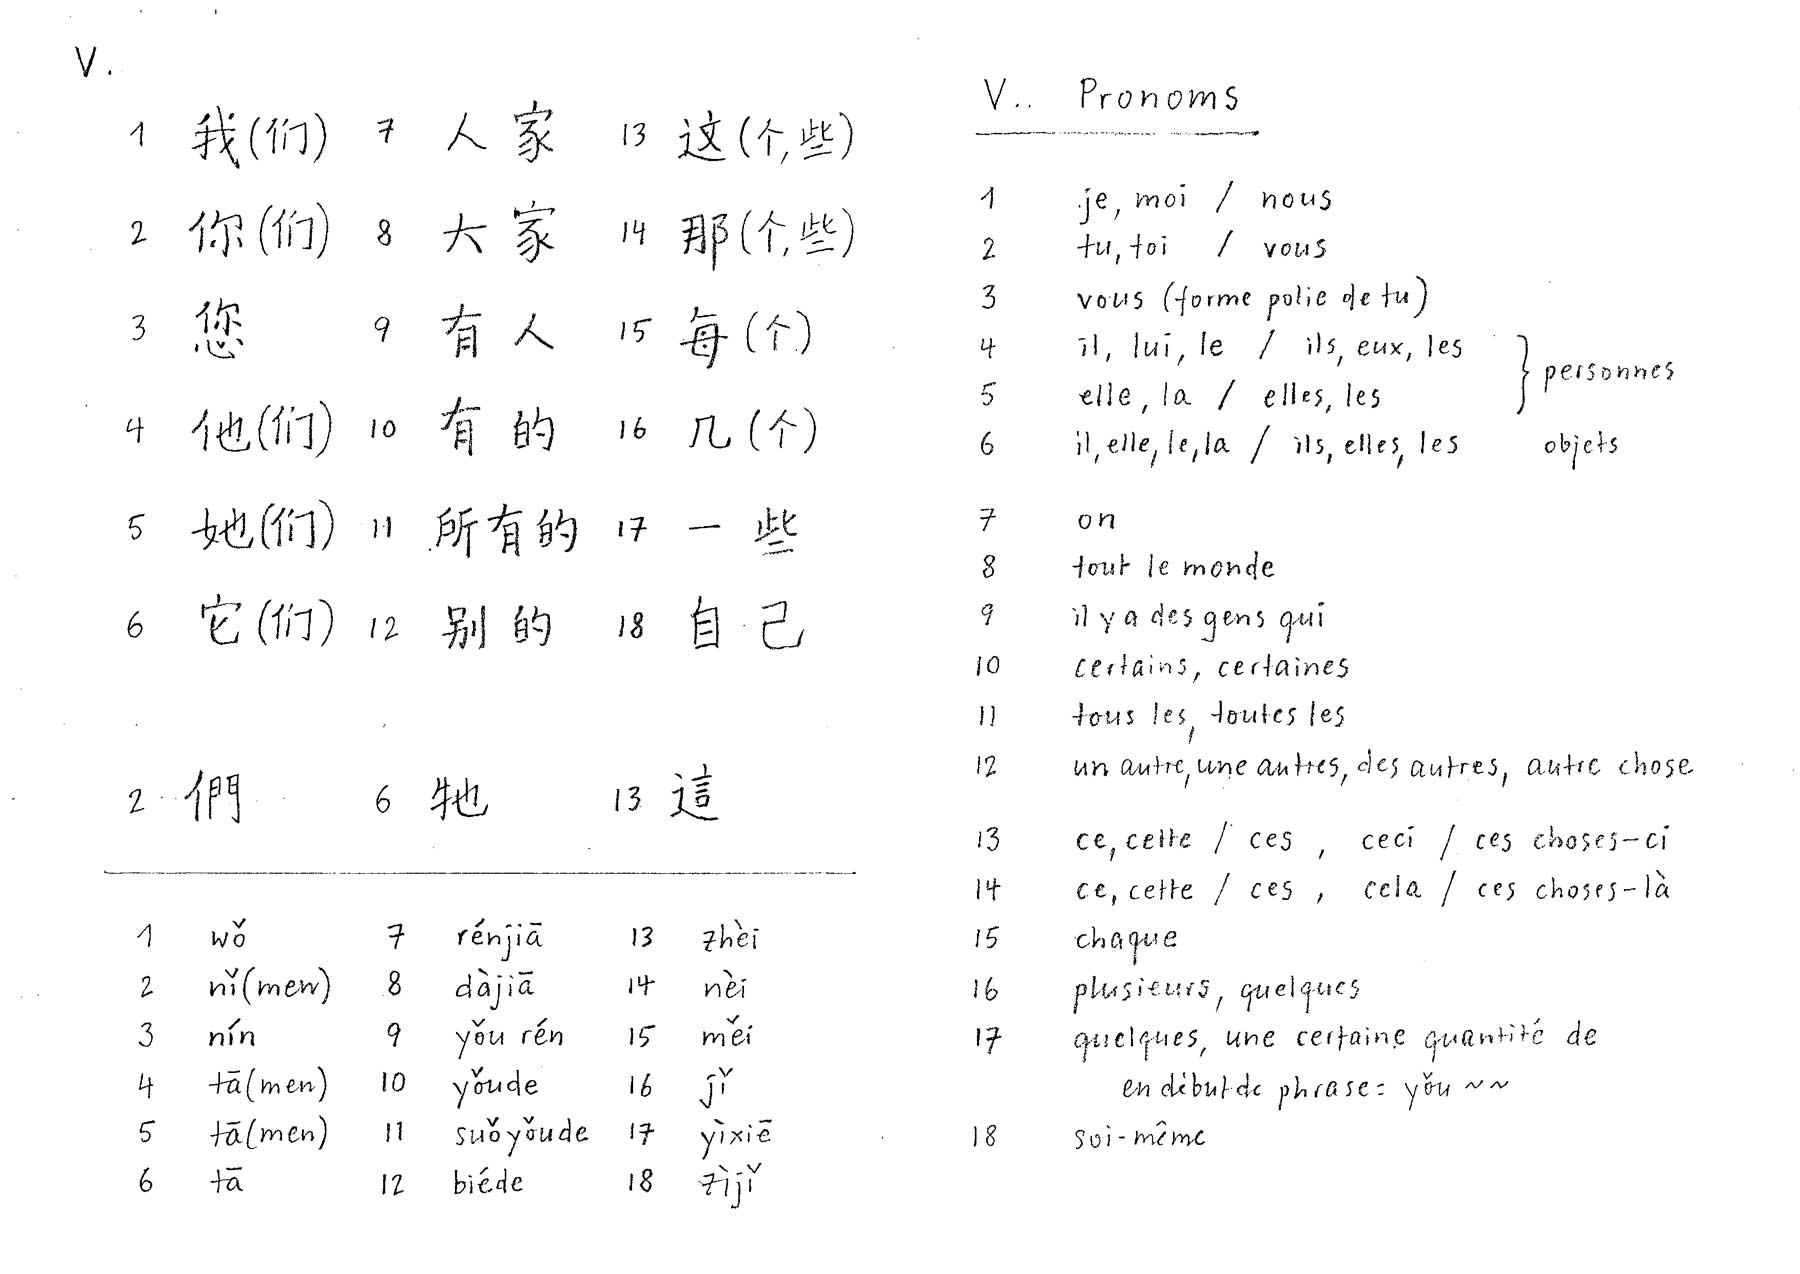 V.
1 我(们) 7 人家 13 这(个,些)
2 你(们) 8 大家 14 那(个,些)
3 您 9 有人 15 每(个)
4 他(们) 10 有的 16 几(个)
5 她(们) 11 所有的 17 一些
6 它(们) 12 别的 18 自己
2 們 6 牠 13 這
1 wǒ 7 rénjiā 13 zhèi
2 nǐ(men) 8 dàjiā 14 nèi
3 nín 9 yǒu rén 15 měi
4 tā(men) 10 yǒude 16 jǐ
5 tā(men) 11 suǒyǒude 17 yìxiē
6 tā 12 biéde 18 zìjǐ
V.. Pronoms
1 je, moi / nous
2 tu, toi / vous
3 vous (forme polie de tu)
4 il, lui, le / ils, eux, les
} personnes
5 elle, la / elles, les
6 il, elle, le, la / ils, elles, les objets
7 on
8 tout le monde
9 il y a des gens qui
10 certains, certaines
11 tous les, toutes les
12 un autre, une autres, des autres, autre chose
13 ce, cette / ces , ceci / ces choses-ci
14 ce, cette / ces , cela / ces choses-là
15 chaque
16 plusieurs, quelques
17 quelques, une certaine quantité de
en début de phrase: yǒu ~~
18 soi-même